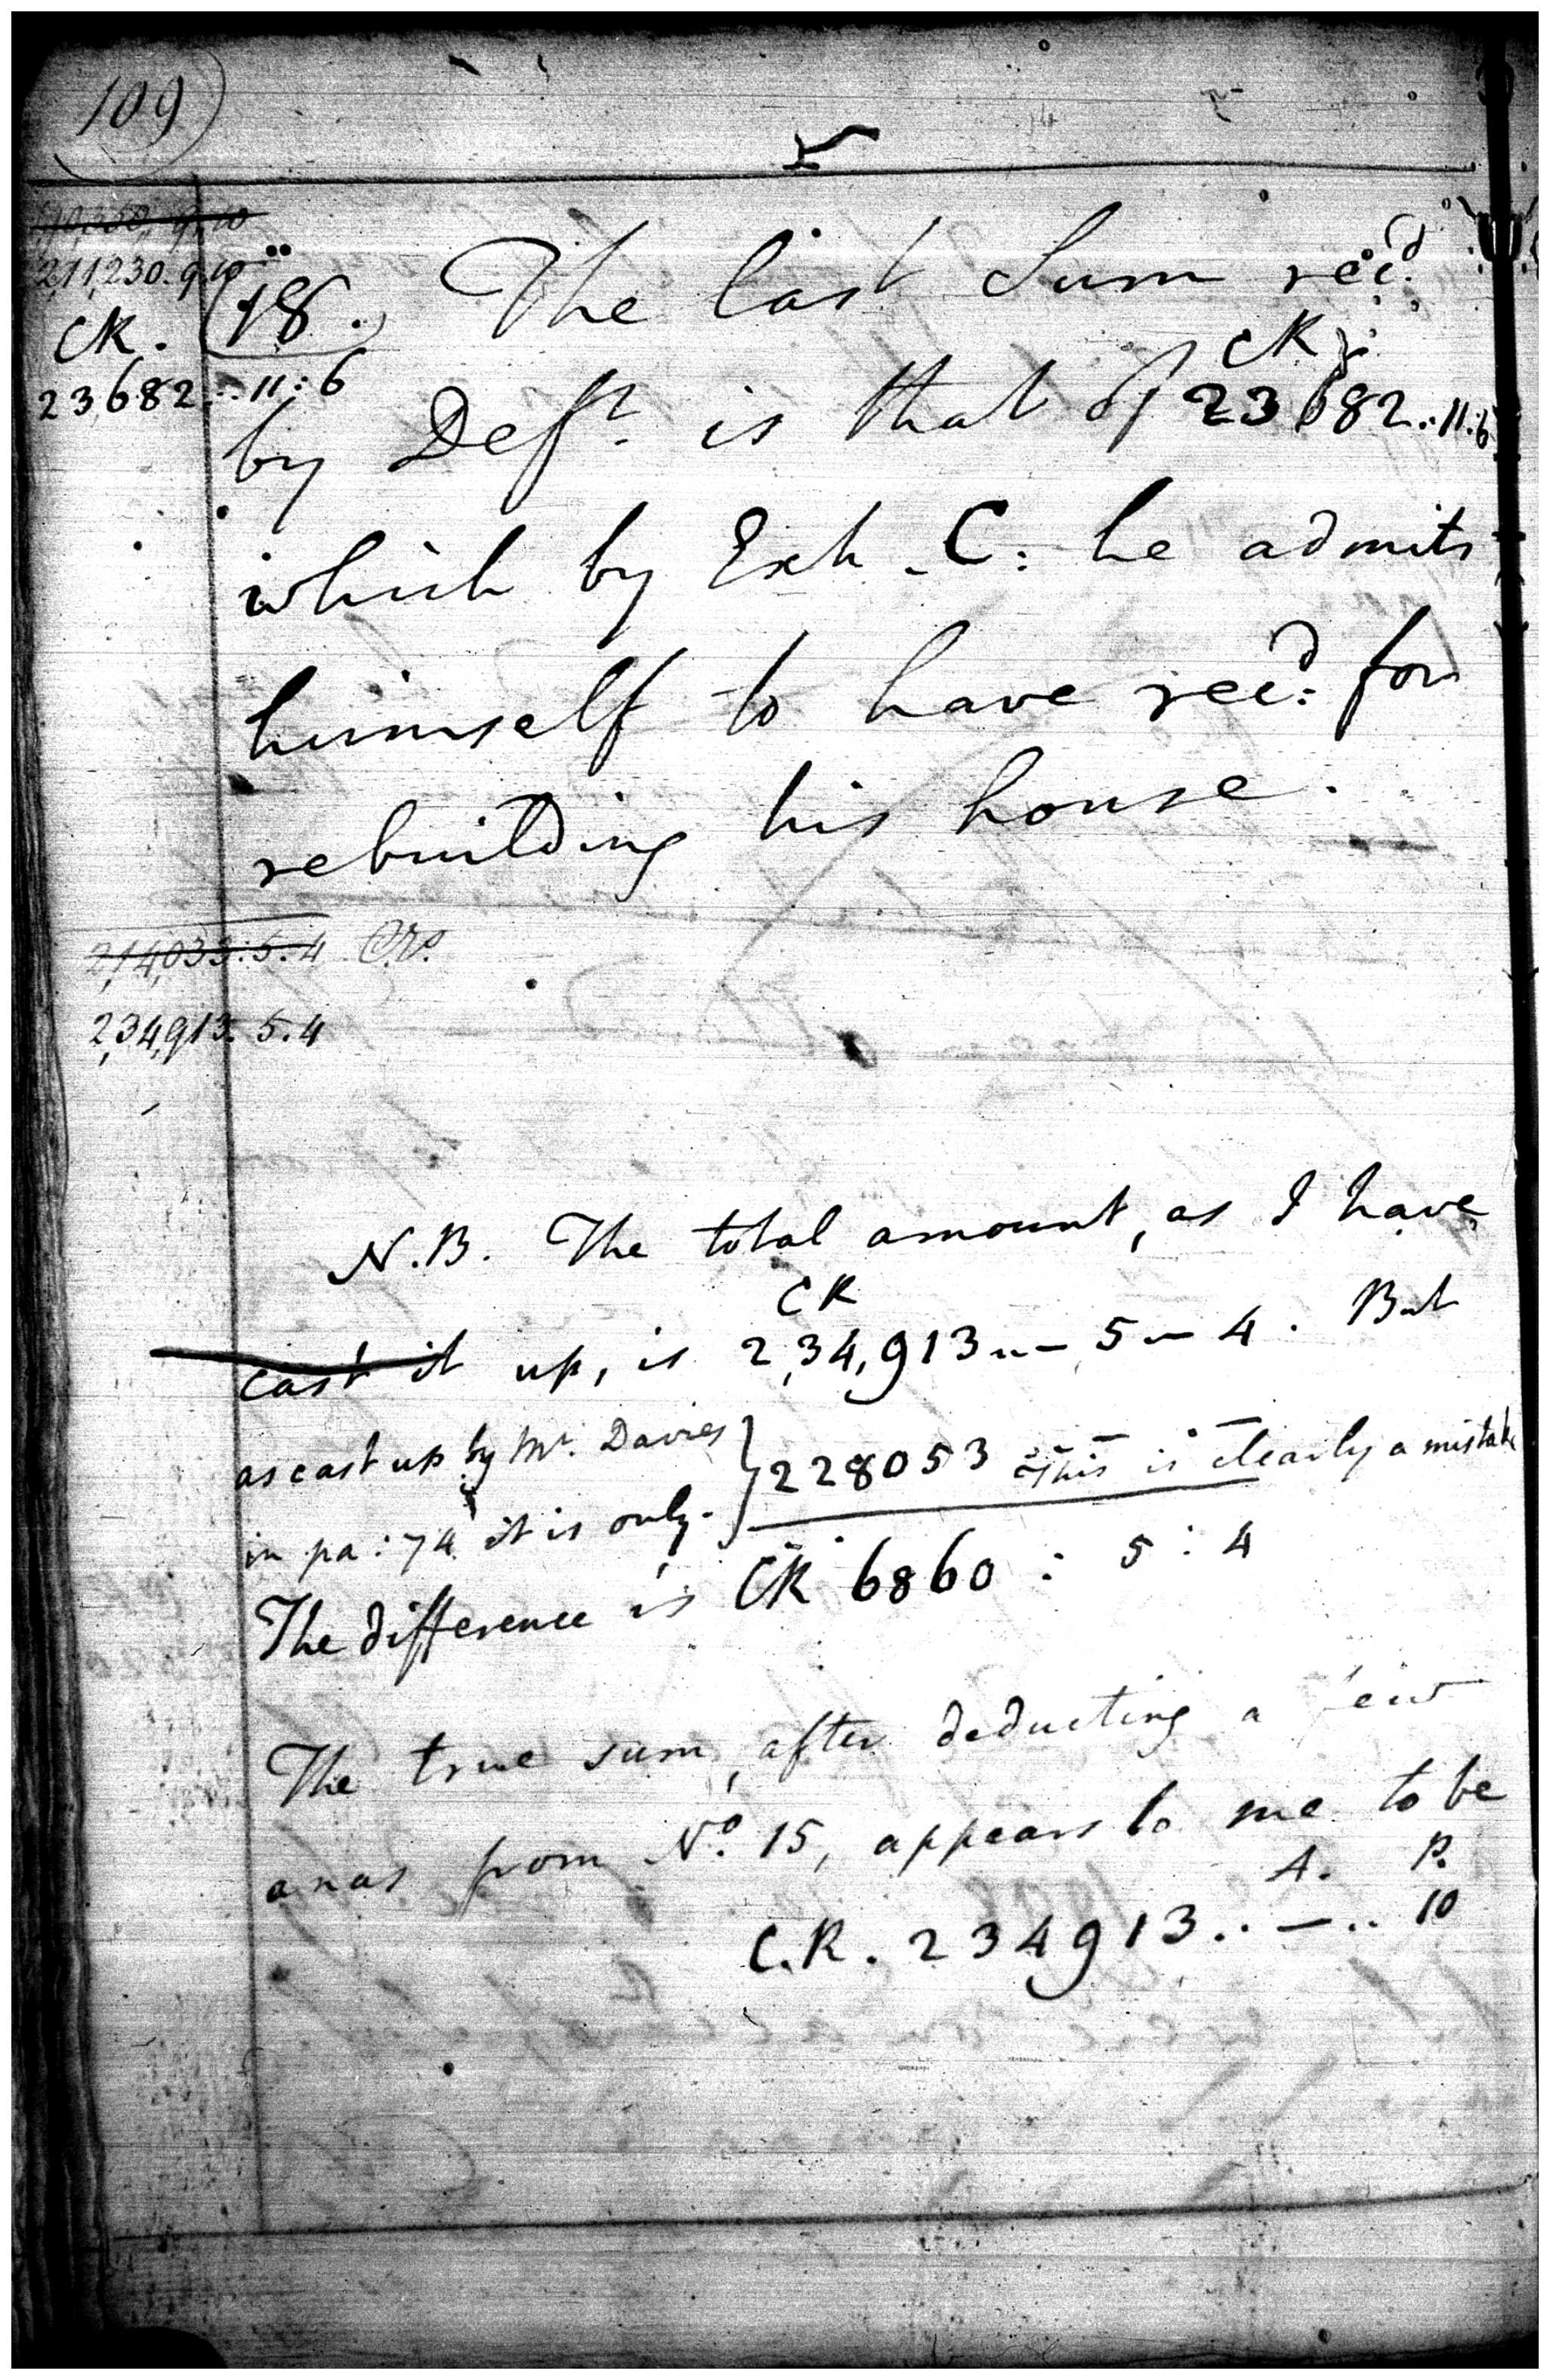 109
2,11,230. 9. 10
CR.
23682..11:6
18. The last Sum rec:d
by Deft. is that of CR 23682..11.6
which by Exh. C: he admits
himself to have rec:d for
rebuilding his house.
2,14,033:5.4 Crs.
2,34,913. 5. 4
N.B. The total amount, as I have
cast it up, is CR 2,34,913..- 5 - 4. But
as cast up by Mr. Davies
in pa: 74 it is only. } 228053 - - This is clearly a mistake
The difference is CR 6860 : 5 : 4
The true sum, after deducting a few
anas from No. 15, appears to me to be
A. P.
C.R. 234913..—.. 10